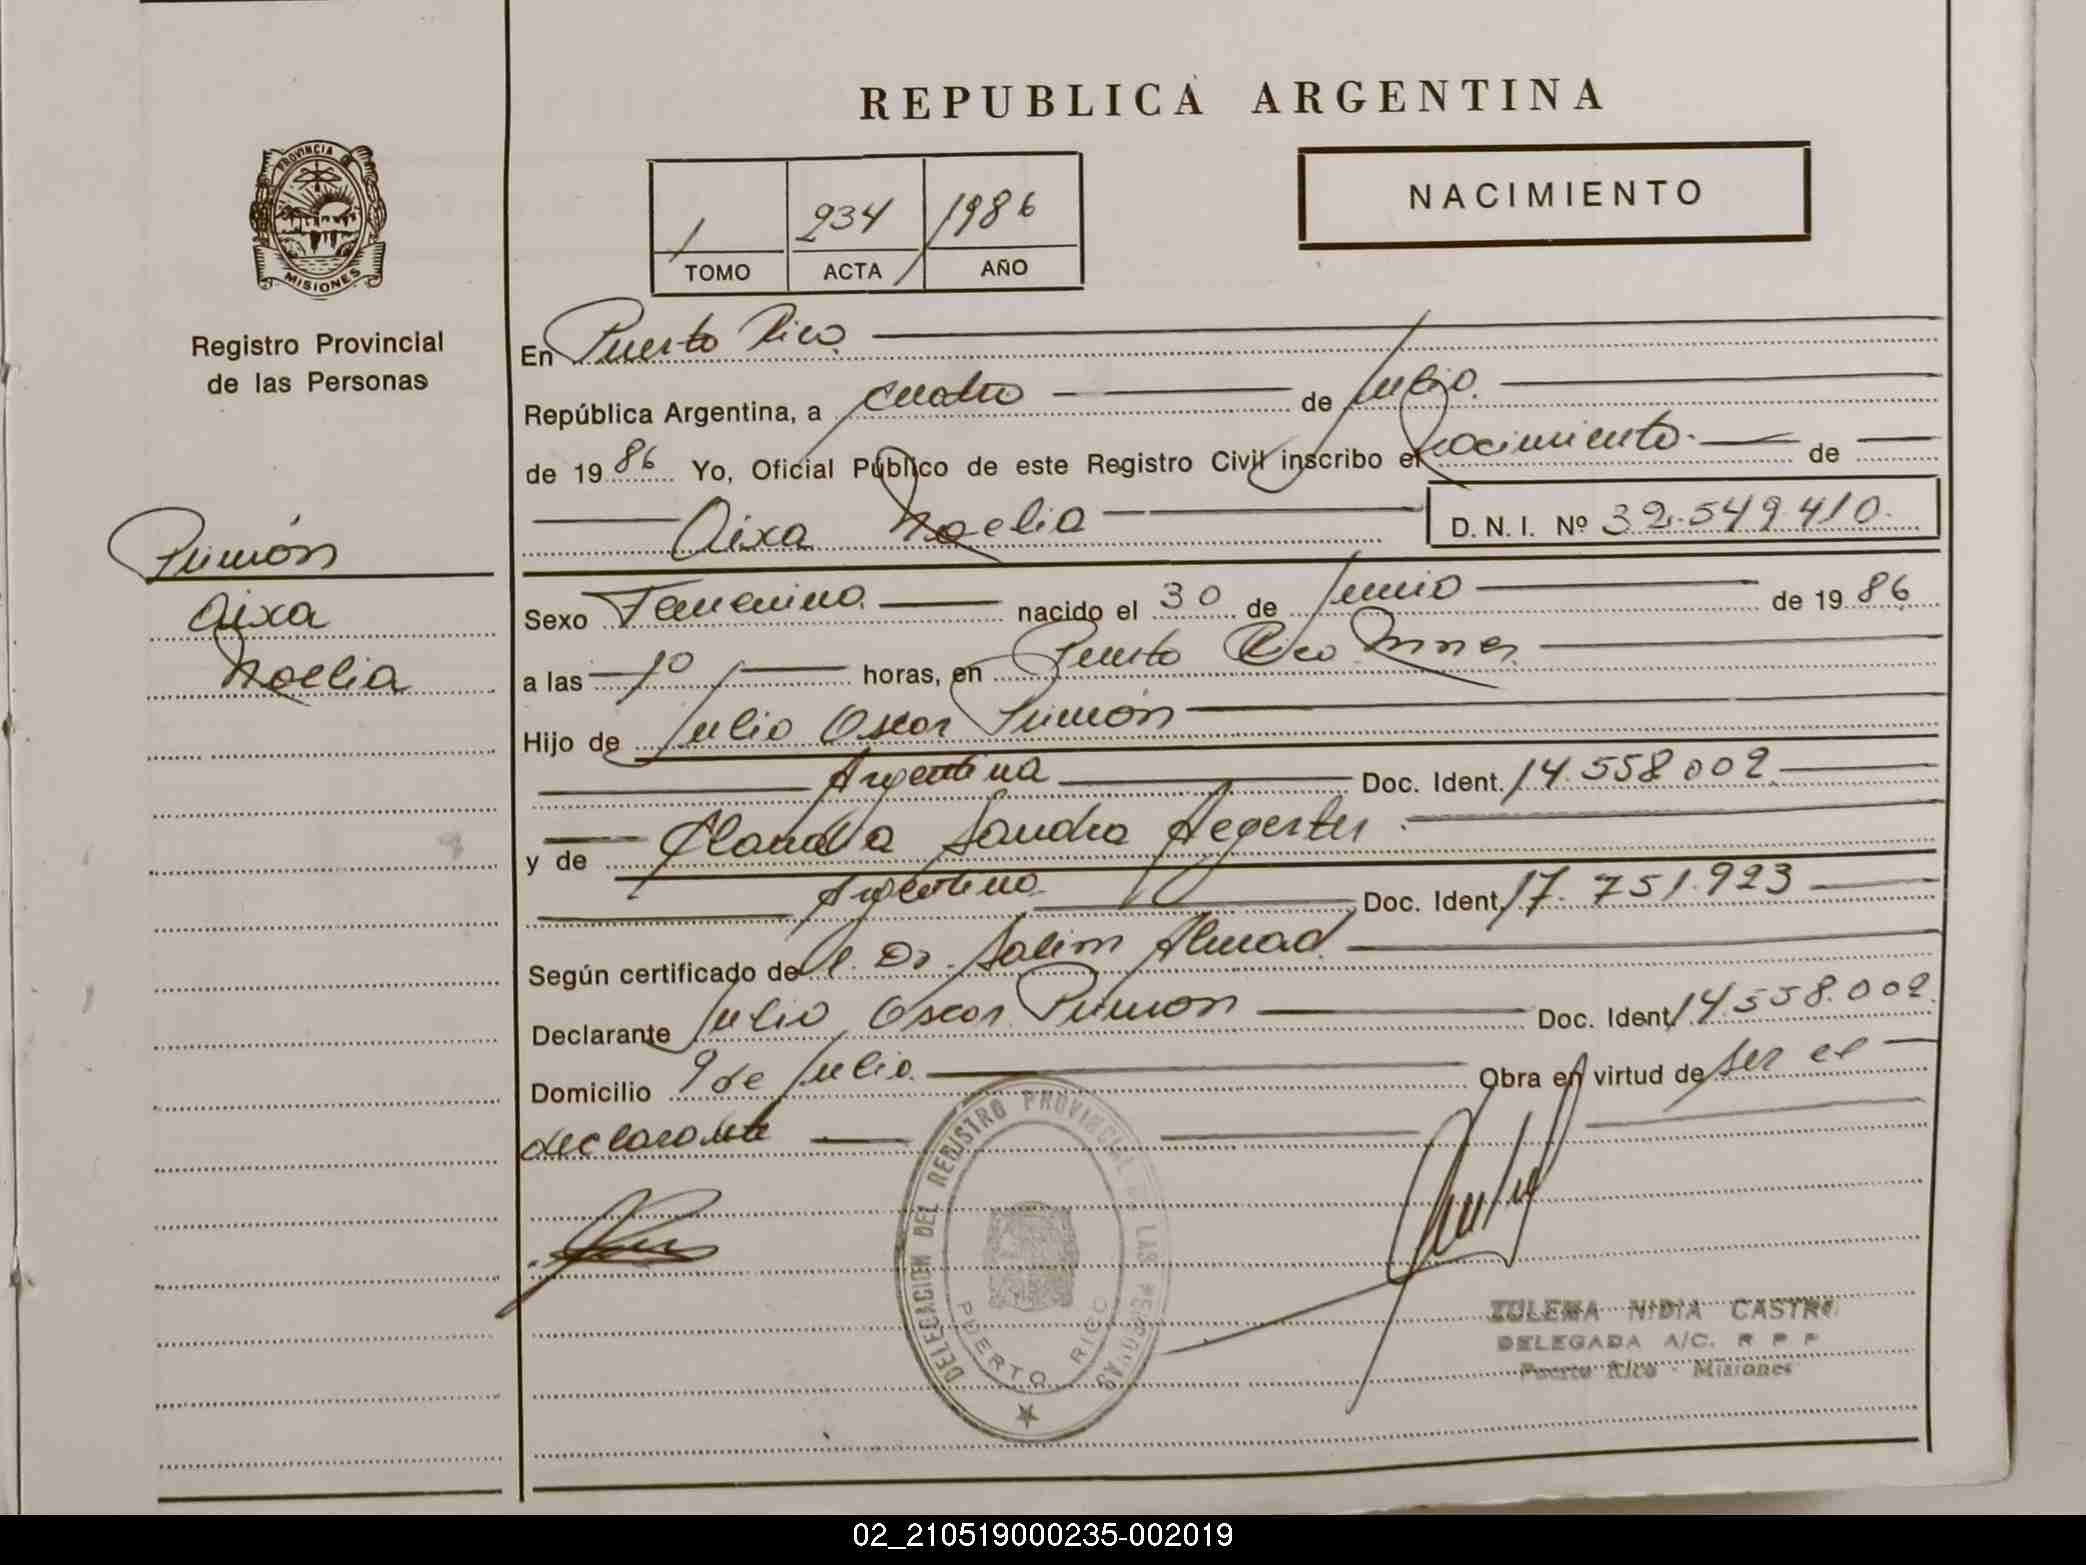 REPUBLICA ARGENTINA
PROVINCIA DE
MISIONES
Registro Provincial
de las Personas
1 234 1986
TOMO ACTA AÑO
NACIMIENTO
En Puerto Rico
República Argentina, a cuatro de Julio.
de 1986 Yo, Oficial Público de este Registro Civil inscribo el nacimiento. de
Aixa Noelia D. N. I. Nº 32.549.410.
Aixa
Noelia
Sexo Femenino. nacido el 30 de Junio de 1986
a las 10 horas, en Puerto Rico Mnes.
Hijo de Julio Oscar
Argentina Doc. Ident. 14.558.002
y de Claudia Sandra Aegerter
Argentina Doc. Ident. 17.751.923
Según certificado del Dr. Salim
Declarante Julio Oscar Doc. Ident. 14.558.002
Domicilio 9 de Julio. Obra en virtud de ser el
declarante
DELEGACION DEL REGISTRO PROVINCIAL DE LAS PERSONAS
PUERTO RICO
ZULEMA NIDIA CASTRO
DELEGADA A/C. R P P
Puerto Rico - Misiones
02_210519000235-002019